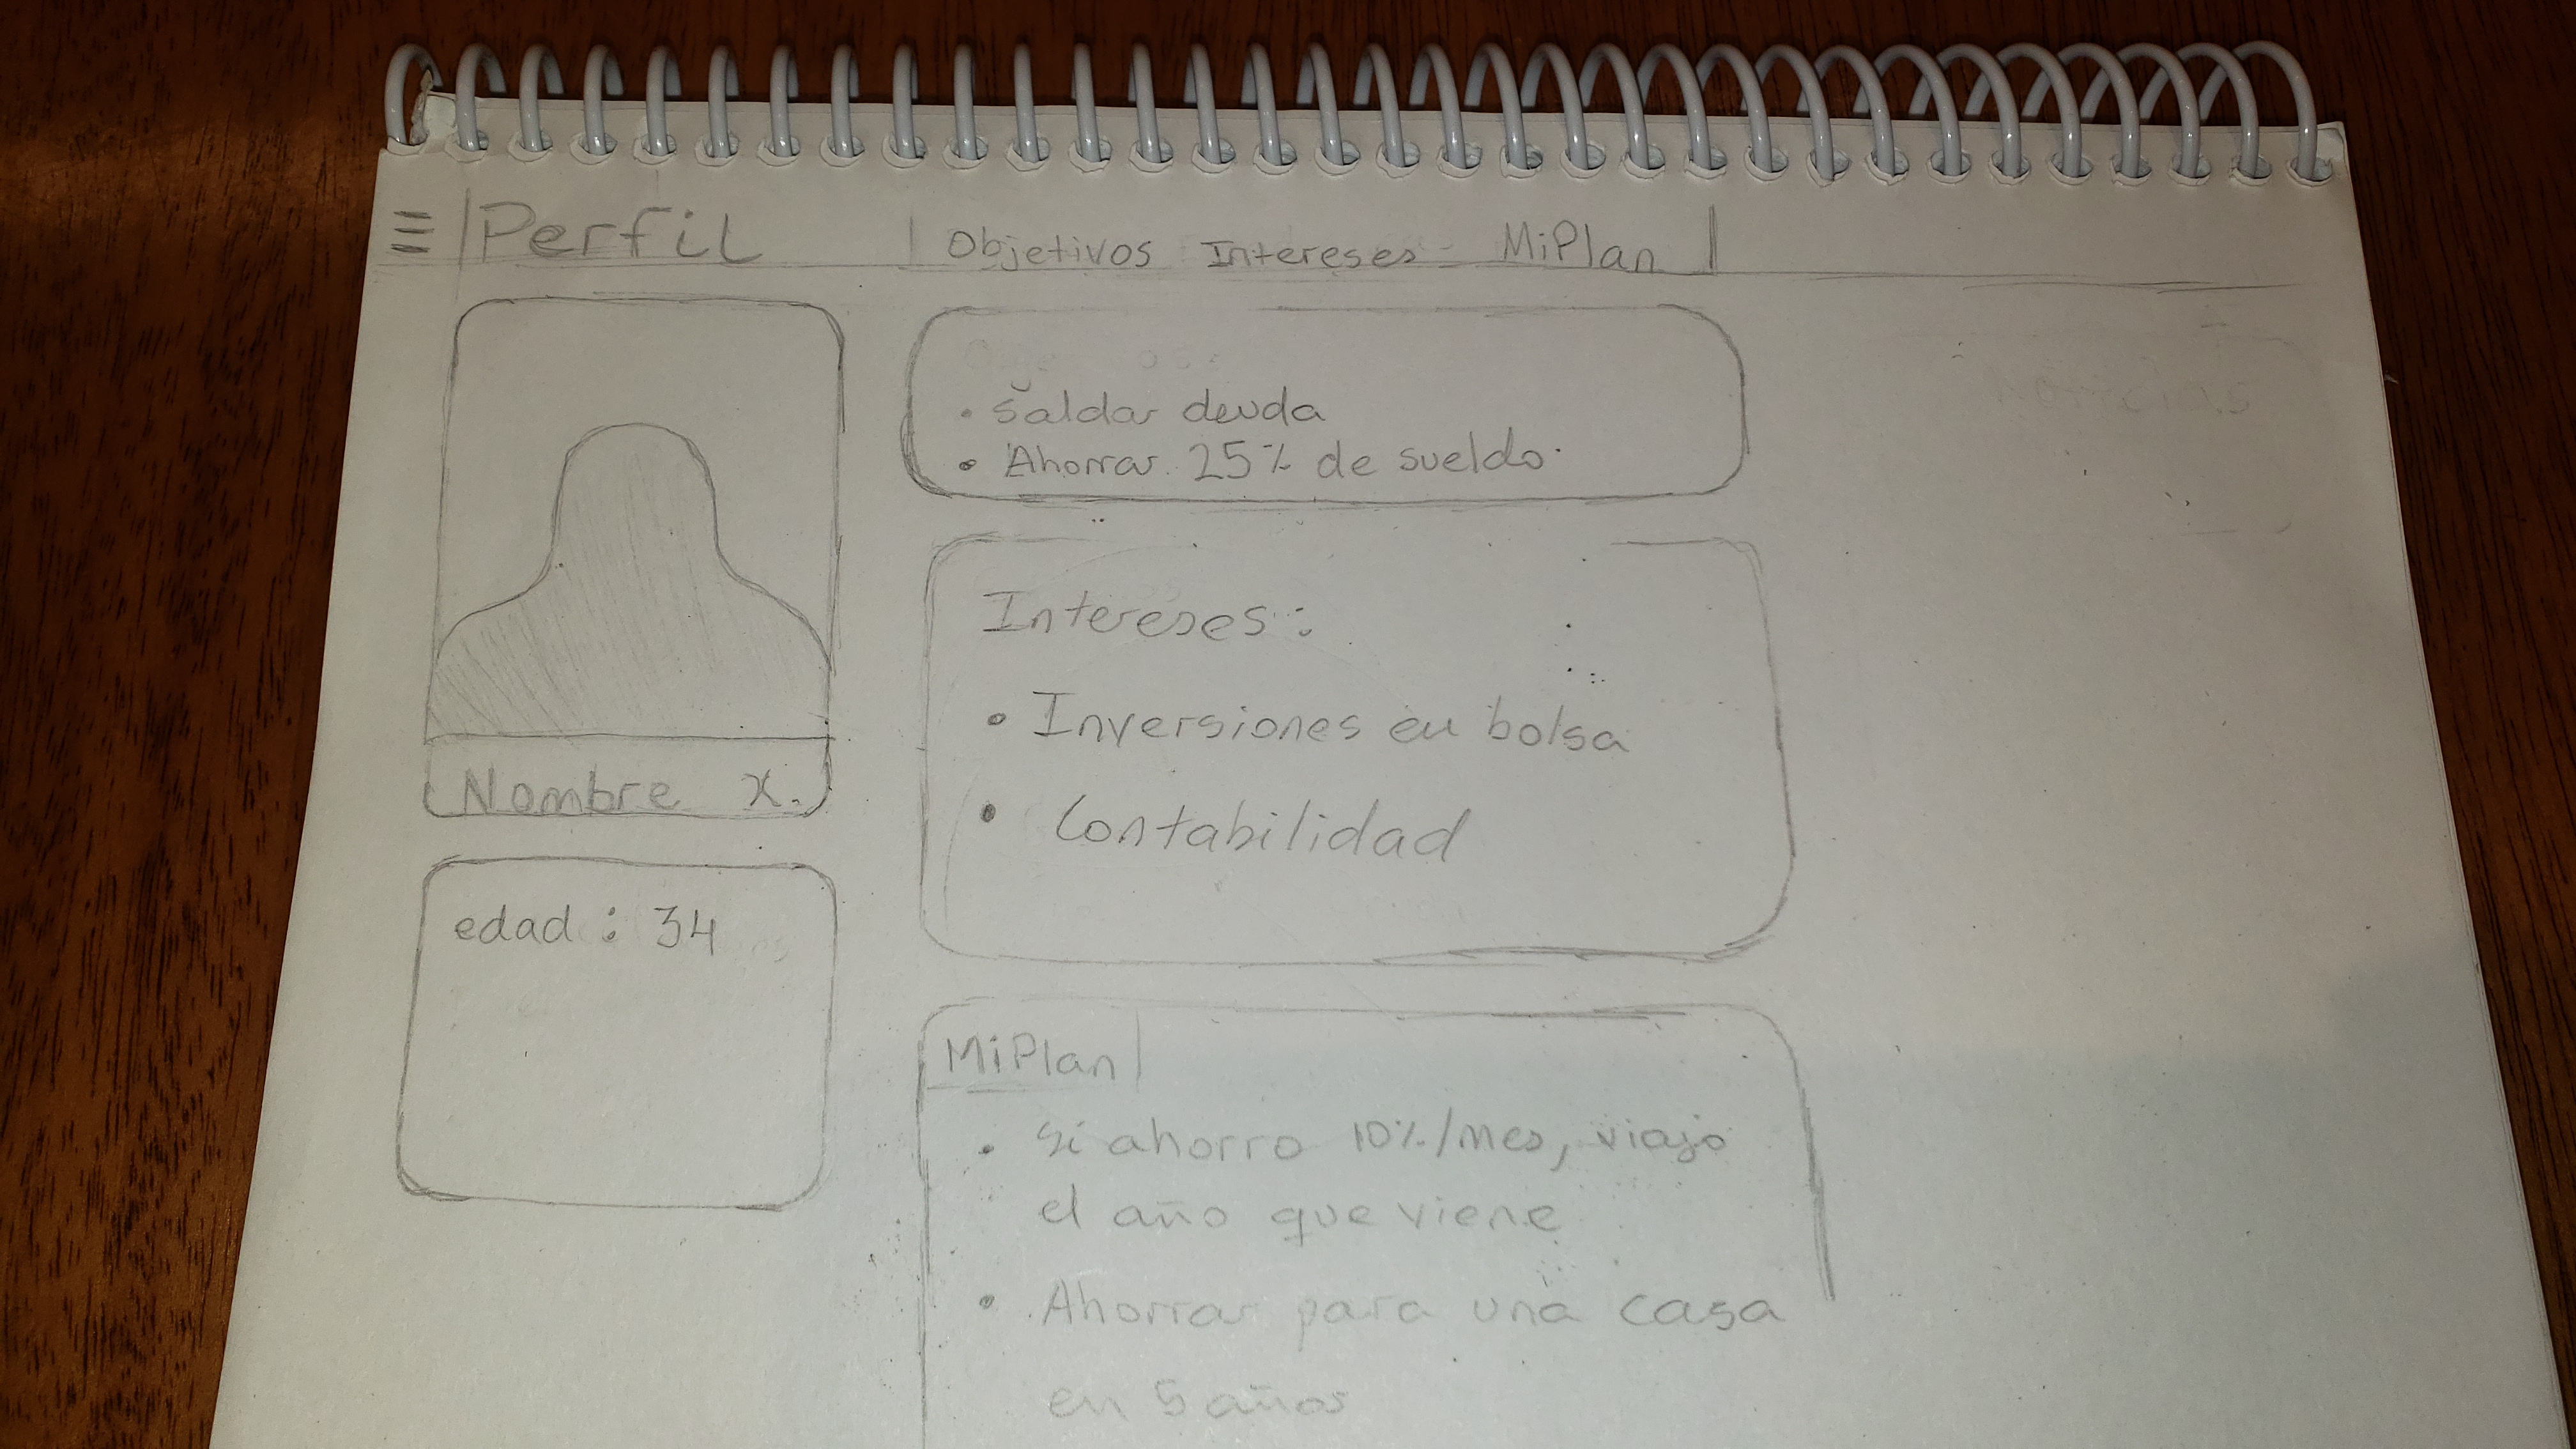 Perfil
Objetivos Intereses MiPlan
Nombre X.
edad : 34
• Saldar deuda
• Ahorrar 25% de sueldo.
Intereses :
• Inversiones en bolsa
• Contabilidad
MiPlan
• Si ahorro 10%/mes, viajo
el año que viene
• Ahorrar para una casa
en 5 años